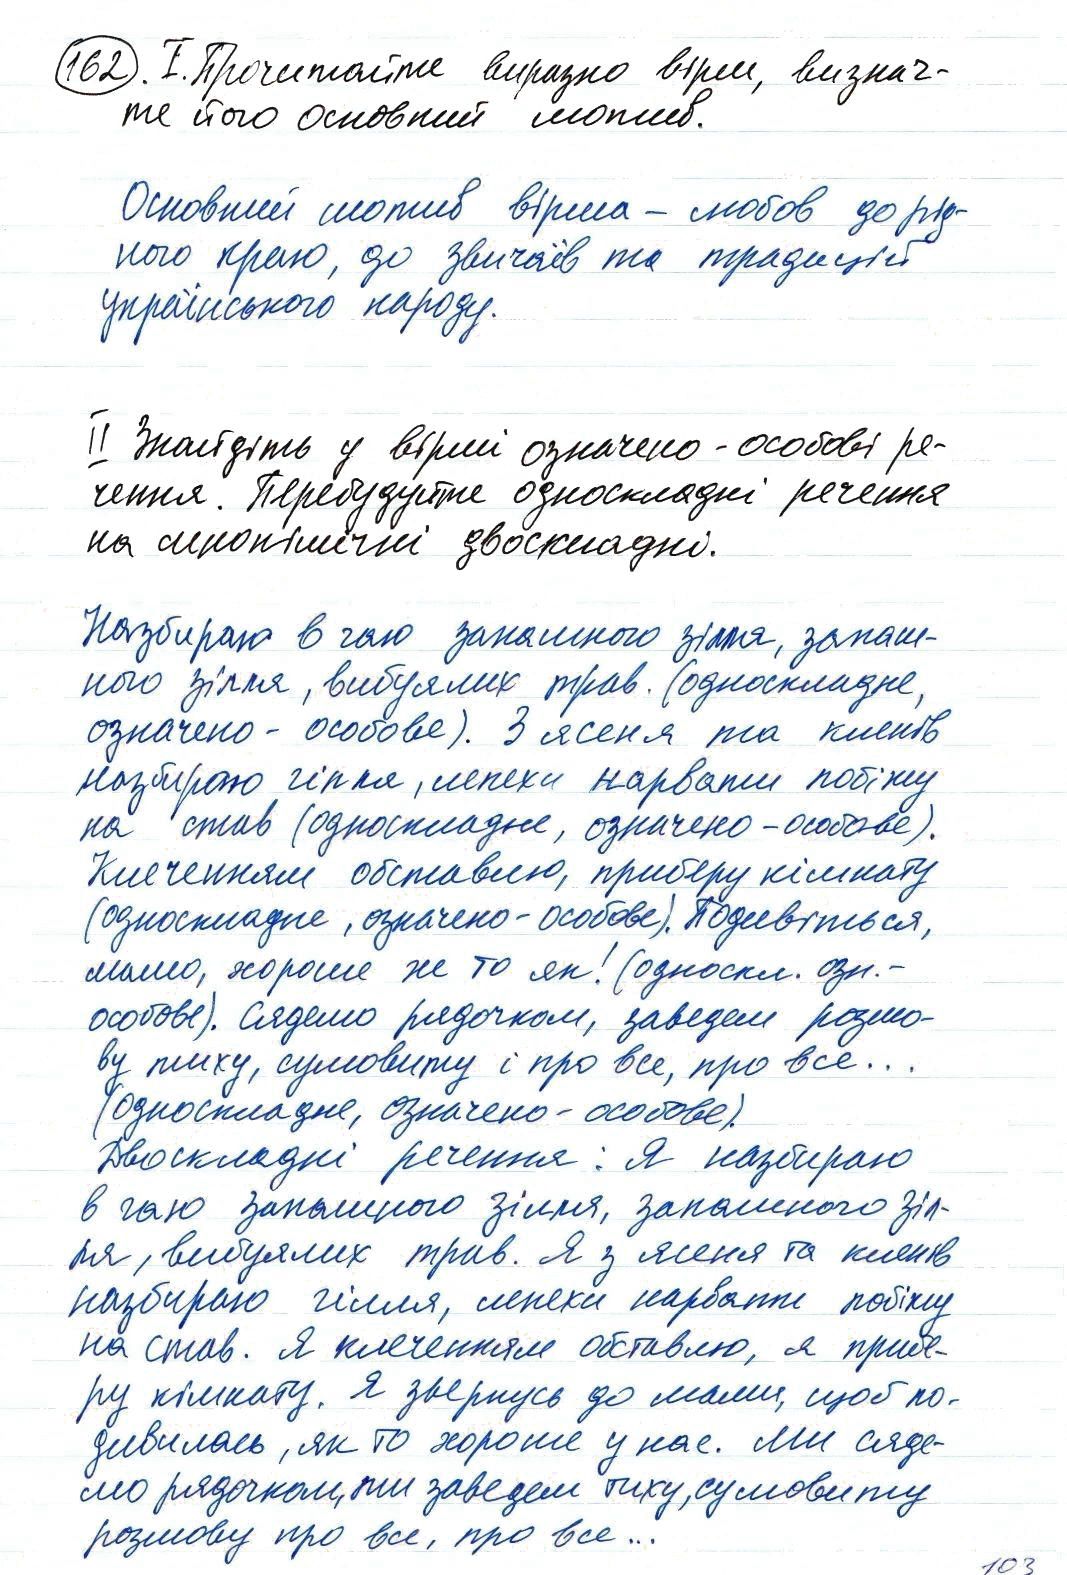 162. I. Прочитайте виразно вірш, визнач-
те його основний мотив.
Основний мотив вірша – любов до рід-
ного краю, до звичаїв та традицій
українського народу.
II Знайдіть у вірші означено-особові ре-
чення. Перебудуйте односкладні речення
на синонімічні двоскладні.
Назбираю в гаю запашного зілля, запаш-
ного зілля, вибуялих трав. (односкладне,
означено-особове). З ясеня та кленів
назбираю гілля, лепехи нарвати побіжу
на став (односкладне, означено-особове).
Клеченням обставлю, приберу кімнату
(односкладне, означено-особове). Подивіться,
мамо, хороше же то як! (односкл. озн.-
особове). Сядемо рядочком, заведем розмо-
ву тиху, сумовиту і про все, про все...
(односкладне, означено-особове).
Двоскладні речення: Я назбираю
в гаю запашного зілля, запашного зіл-
ля, вибуялих трав. Я з ясеня та кленів
назбираю гілля, лепехи нарвати побіжу
на став. Я клеченням обставлю, я прибе-
ру кімнату. Я звернусь до мами, щоб по-
дивилась, як то хороше у нас. Ми сяде-
мо рядочком, ми заведем тиху, сумовиту
розмову про все, про все...
103